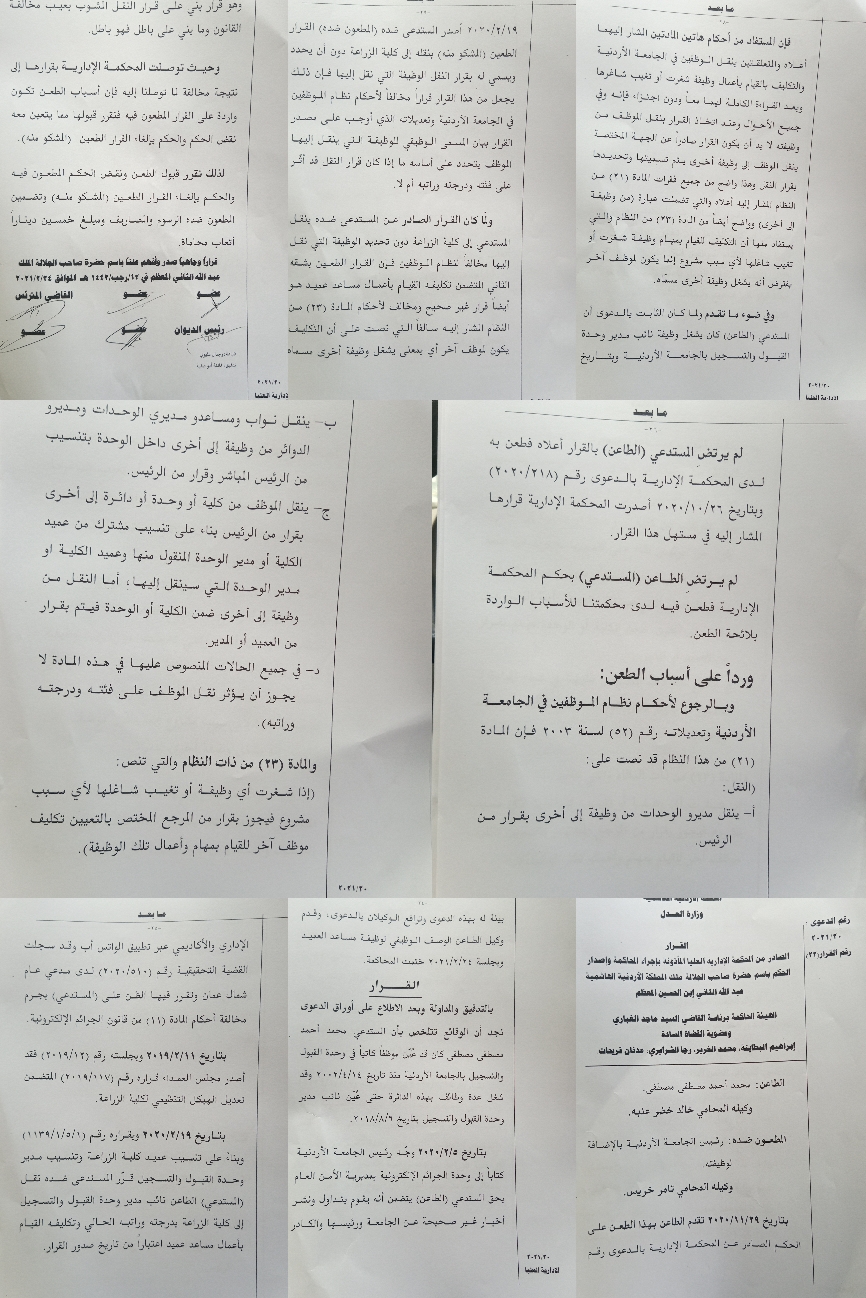 ما بعد
فإن المستفاد من أحكام هاتين المادتين المشار إليهما
أعلاه والمتعلقتين بنقل الموظفين في الجامعة الأردنية
والتكليف بالقيام بأعمال وظيفة شغرت أو تغيب شاغرها
وبعد القراءة الكاملة لهما معاً ودون اجتزاء فإنه وفي
جميع الأحوال وعند اتخاذ القرار بنقل الموظف من
وظيفته لا بد أن يكون القرار صادراً عن الجهة المختصة
بنقل الموظف إلى وظيفة أخرى يتم تسميتها وتحديدها
بقرار النقل وهذا واضح من جميع فقرات المادة (٢١) من
النظام المشار إليه أعلاه والتي تضمنت عبارة (من وظيفة
إلى أخرى) وواضح أيضاً من المادة (٢٣) من النظام والتي
يستفاد منها أن التكليف للقيام بمهام وظيفة شغرت أو
تغيب شاغلها لأي سبب مشروع إنما يكون لموظف آخر
يفترض أنه يشغل وظيفة أخرى مسماه.
وفي ضوء ما تقدم ولما كان الثابت بالدعوى أن
المستدعي (الطاعن) كان يشغل وظيفة نائب مدير وحدة
القبول والتسجيل بالجامعة الأردنية وبتاريخ
٢٠٢١/٢٠
لادارية العليا
٢٠٢٠/٢/١٩ أصدر المستدعى ضده (المطعون ضده) القرار
الطعين (المشكو منه) بنقله إلى كلية الزراعة دون أن يحدد
ويسمي له بقرار النقل الوظيفة التي نقل إليها فإن ذلك
يجعل من هذا القرار قراراً مخالفاً لأحكام نظام الموظفين
في الجامعة الأردنية وتعديلاته الذي أوجب على مصدر
القرار بيان المسمى الوظيفي للوظيفة التي ينقل إليها
الموظف يتحدد على أساسه ما إذا كان قرار النقل قد أثر
على فئته ودرجته وراتبه أم لا.
ولما كان القرار الصادر عن المستدعى ضده بنقل
المستدعي إلى كلية الزراعة دون تحديد الوظيفة التي نقل
إليها مخالفاً لنظام الموظفين فإن القرار الطعين بشقه
الثاني المتضمن تكليفه القيام بأعمال مساعد عميد هو
أيضا قرار غير صحيح ومخالف لأحكام المادة (٢٣) من
النظام المشار إليه سالفاً التي نصت على أن التكليف
يكون لموظف آخر أي بمعنى يشغل وظيفة أخرى مسماه
وهو قرار بني على قرار النقل المشوب بعيب مخالفة
القانون وما بني على باطل فهو باطل.
وحيث توصلت المحكمة الإدارية بقرارها إلى
نتيجة مخالفة لما توصلنا إليه فإن أسباب الطعن تكون
واردة على القرار المطعون فيه فتقرر قبولها مما يتعين معه
نقض الحكم والحكم بإلغاء القرار الطعين (المشكو منه).
لذلك نقرر قبول الطعن ونقض الحكم المطعون فيه
والحكم بإلغاء القرار الطعين (المشكو منه) وتضمين
المطعون ضده الرسوم والمصاريف ومبلغ خمسين ديناراً
أتعاب محاماة.
قراراً وجاهياً صدر وأفهم علناً باسم حضرة صاحب الجلالة الملك
عبد الله الثاني المعظم في ١٢/رجب/١٤٤٢ هـ الموافق ٢٠٢١/٢/٢٤
عضو عضو القاضي المترئس
رئيس الديوان عضو عضو
٢٠٢١/٢٠
لإدارية العليا
ما بعد
لم يرتض المستدعي (الطاعن) بالقرار أعلاه فطعن به
لدى المحكمة الإدارية بالدعوى رقم (٢٠٢٠/٢١٨)
وبتاريخ ٢٠٢٠/١٠/٢٦ أصدرت المحكمة الإدارية قرارها
المشار إليه في مستهل هذا القرار.
لم يرتضِ الطاعن (المستدعي) بحكم المحكمة
الإدارية فطعن فيه لدى محكمتنا للأسباب الواردة
بلائحة الطعن.
ورداً على أسباب الطعن:
وبالرجوع لأحكام نظام الموظفين في الجامعة
الأردنية وتعديلاته رقم (٥٢) لسنة ٢٠٠٣ فإن المادة
(٢١) من هذا النظام قد نصت على:
(النقل:
أ– ينقل مديرو الوحدات من وظيفة إلى أخرى بقرار من
الرئيس.
ب– ينقل نواب ومساعدو مديري الوحدات ومديرو
الدوائر من وظيفة إلى أخرى داخل الوحدة بتنسيب
من الرئيس المباشر وقرار من الرئيس.
ج– ينقل الموظف من كلية أو وحدة أو دائرة إلى أخرى
بقرار من الرئيس بناء على تنسيب مشترك من عميد
الكلية أو مدير الوحدة المنقول منها وعميد الكلية او
مدير الوحدة التي سينقل إليها، أما النقل من
وظيفة إلى أخرى ضمن الكلية أو الوحدة فيتم بقرار
من العميد أو المدير.
د– في جميع الحالات المنصوص عليها في هذه المادة لا
يجوز أن يؤثر نقل الموظف على فئته ودرجته
وراتبه).
والمادة (٢٣) من ذات النظام والتي تنص:
(إذا شغرت أي وظيفة أو تغيب شاغلها لأي سبب
مشروع فيجوز بقرار من المرجع المختص بالتعيين تكليف
موظف آخر للقيام بمهام وأعمال تلك الوظيفة).
٢٠٢١/٢٠
وزارة العدل
رقم الدعوى
٢٠٢١/٢٠
رقم القرار:
القرار
الصادر من المحكمة الإدارية العليا المأذونة بإجراء المحاكمة وإصدار
الحكم باسم حضرة صاحب الجلالة ملك المملكة الأردنية الهاشمية
عبد الله الثاني إبن الحسين المعظم
الهيئة الحاكمة برئاسة القاضي السيد ماجد الغباري
وعضوية القضاة السادة
إبراهيم البطاينه، محمد الغرير، رجا الشرايري، عدنان فريحات
الطاعن: محمد أحمد مصطفى مصطفى.
وكيله المحامي خالد خضر عنبه.
المطعون ضده: رئيس الجامعة الأردنية بالإضافة
لوظيفته
وكيله المحامي تامر خريس.
بتاريخ ٢٠٢٠/١١/٢٩ تقدم الطاعن بهذا الطعن على
الحكم الصادر عن المحكمة الإدارية بالدعوى رقم
بينة له بهذه الدعوى وترافع الوكيلان بالدعوى، وقدم
وكيل الطاعن الوصف الوظيفي لوظيفة مساعد العميد
وبجلسة ٢٠٢١/٢/٢٤ ختمت المحاكمة.
القرار
بالتدقيق والمداولة وبعد الاطلاع على أوراق الدعوى
نجد أن الوقائع تتلخص بأن المستدعي محمد أحمد
مصطفى مصطفى كان قد عُيّن موظفاً كاتباً في وحدة القبول
والتسجيل بالجامعة الأردنية منذ تاريخ ٢٠٠٢/٤/١٤ وقد
شغل عدة وظائف بهذه الدائرة حتى عُيّن نائب مدير
وحدة القبول والتسجيل بتاريخ ٢٠١٨/٨/٦.
بتاريخ ٢٠٢٠/٢/٥ وجّه رئيس الجامعة الأردنية
كتاباً إلى وحدة الجرائم الإلكترونية بمديرية الأمن العام
بحق المستدعي (الطاعن) يتضمن أنه يقوم بتداول ونشر
أخبار غير صحيحة عن الجامعة ورئيسها والكادر
٢٠٢١/٢٠
لإدارية العليا
ما بعد
الإداري والأكاديمي عبر تطبيق الواتس أب وقد سجلت
القضية التحقيقية رقم (٢٠٢٠/٥١٠) لدى مدعي عام
شمال عمان وتقرر فيها الظن على (المستدعي) بجرم
مخالفة أحكام المادة (١١) من قانون الجرائم الإلكترونية.
بتاريخ ٢٠١٩/٢/١١ وبجلسته رقم (٢٠١٩/١٢) فقد
أصدر مجلس العمداء قراره رقم (٢٠١٩/١١٧) المتضمن
تعديل الهيكل التنظيمي لكلية الزراعة.
بتاريخ ٢٠٢٠/٢/١٩ وبقراره رقم (١١٣٩/١/٥/١)
وبناءً على تنسيب عميد كلية الزراعة وتنسيب مدير
وحدة القبول والتسجيل قرّر المستدعى ضده نقل
(المستدعي) الطاعن نائب مدير وحدة القبول والتسجيل
إلى كلية الزراعة بدرجته وراتبه الحالي وتكليفه القيام
بأعمال مساعد عميد اعتباراً من تاريخ صدور القرار.